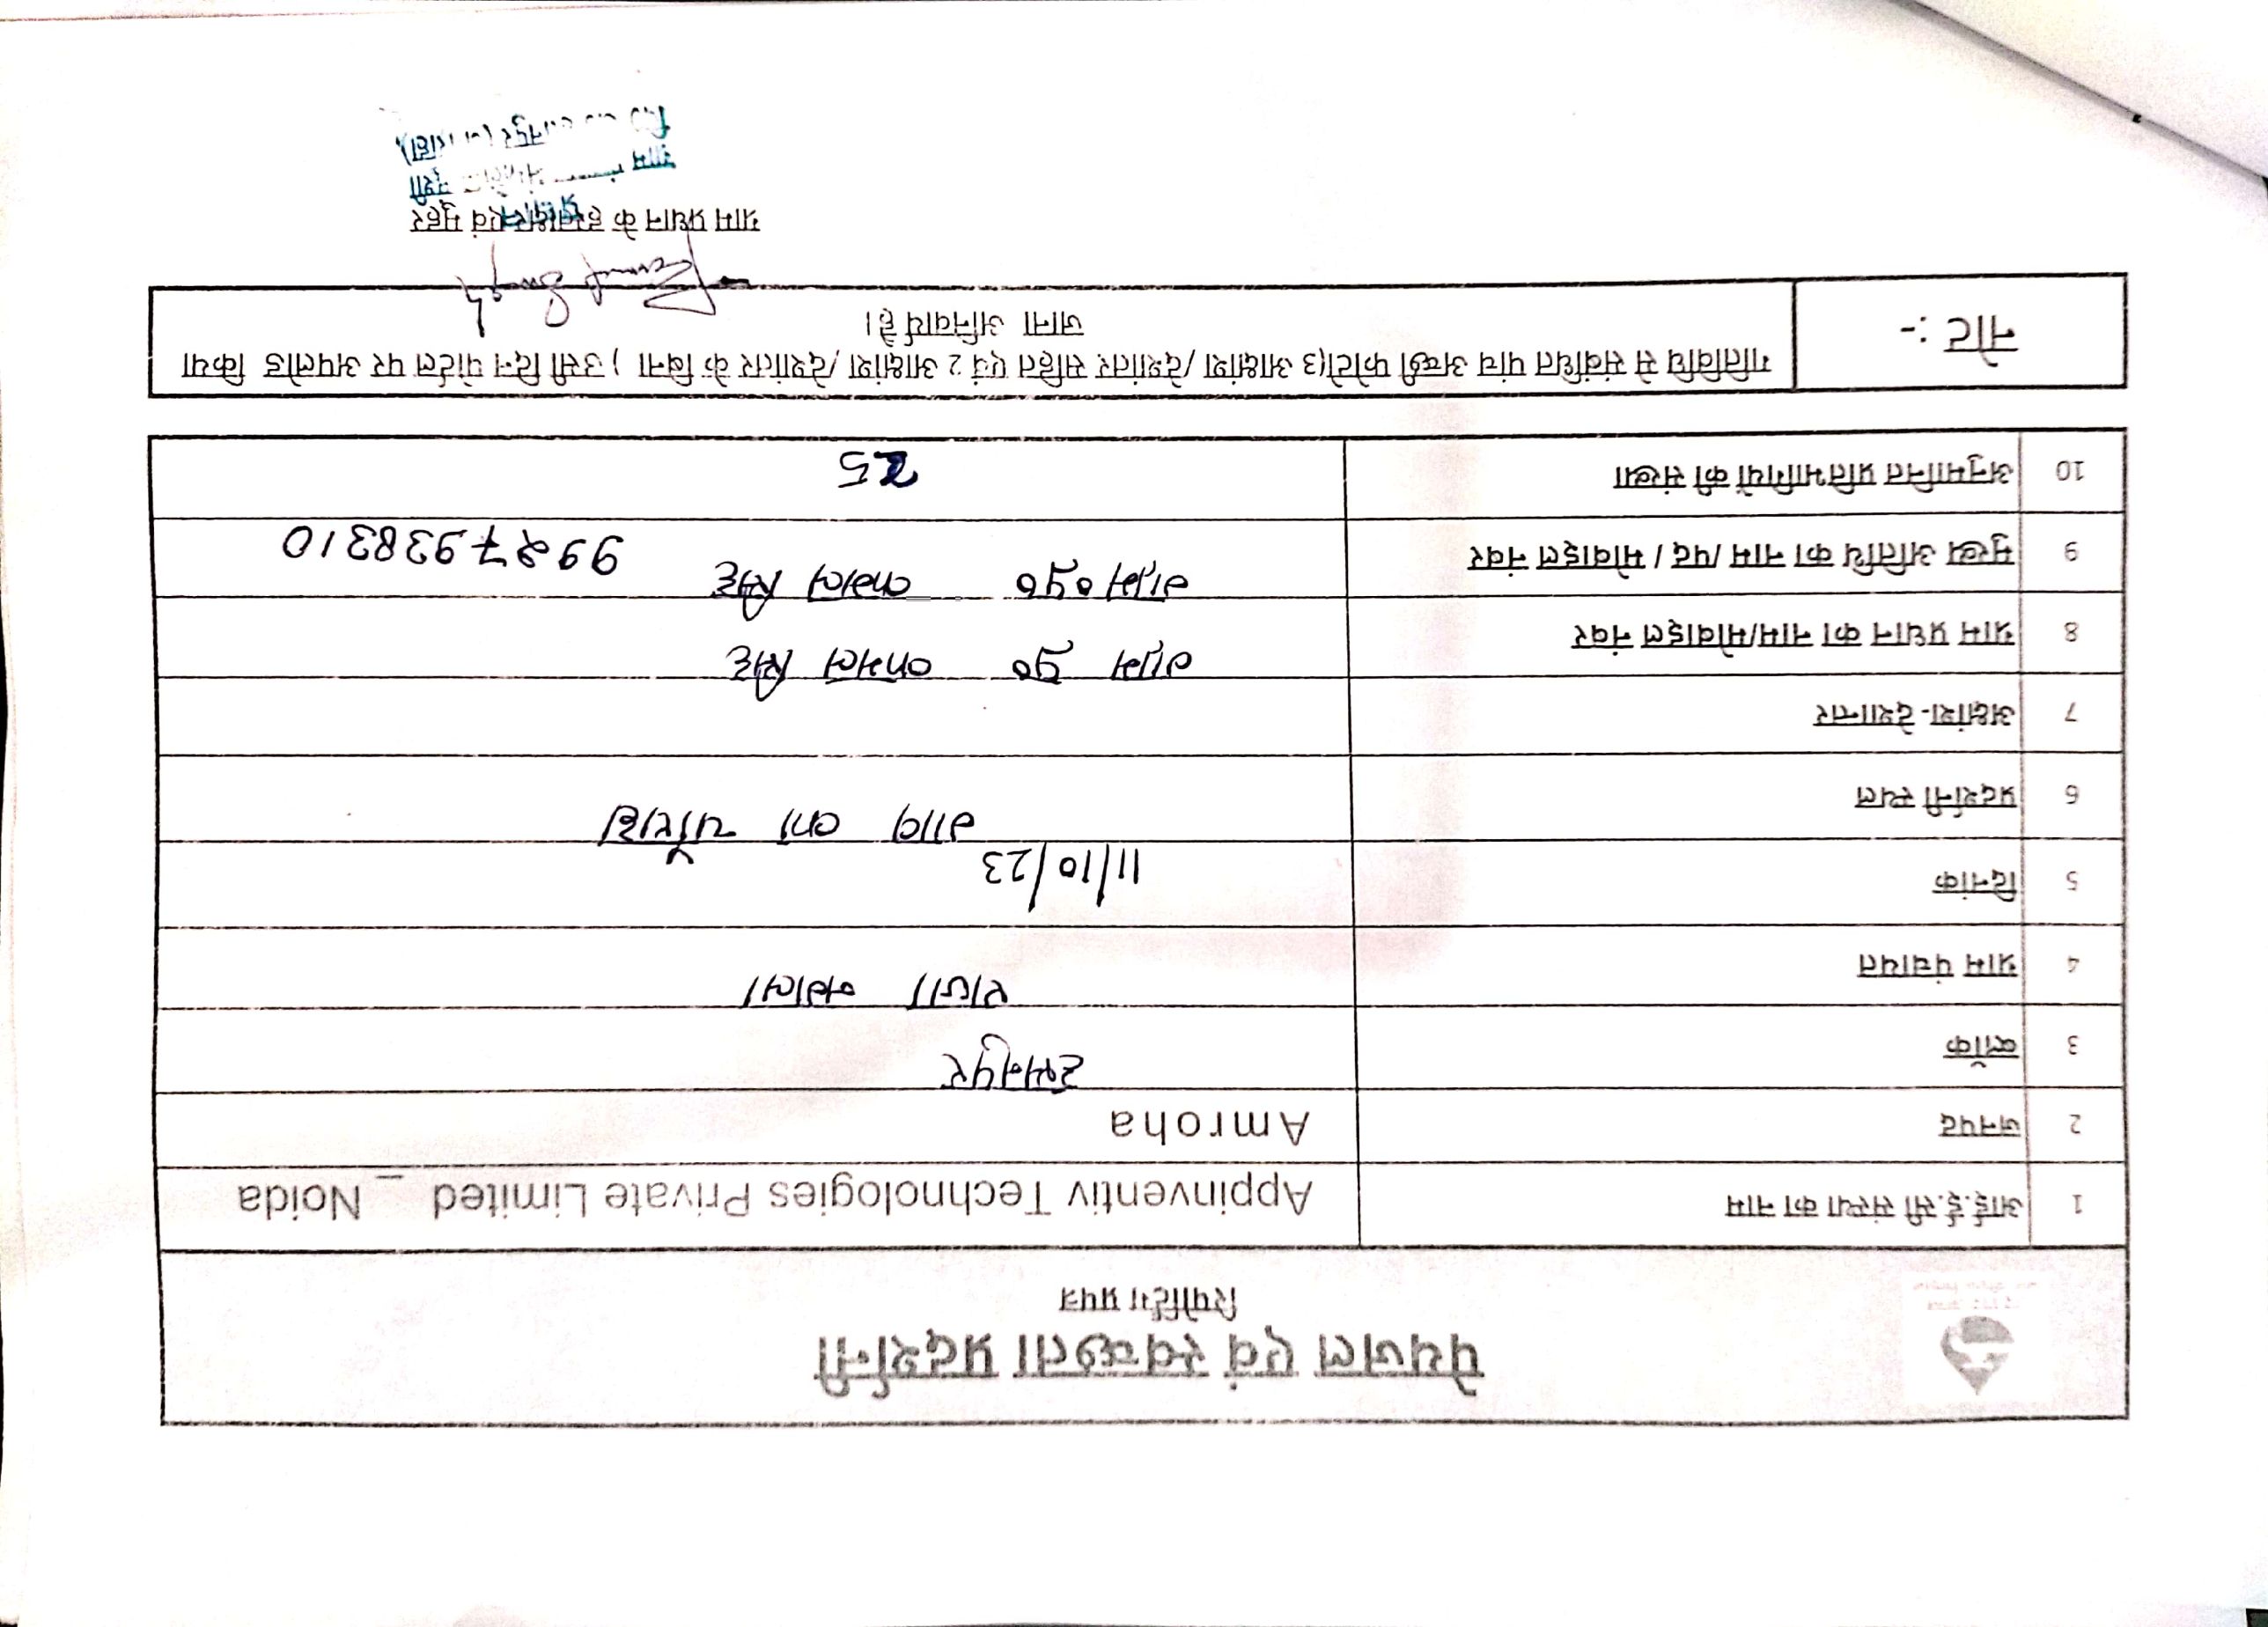 पेयजल एवं स्वच्छता प्रदर्शनी
रिपोर्टिंग प्रपत्र
1 आई.ई.सी संस्था का नाम Appinventiv Technologies Private Limited _ Noida
2 जनपद Amroha
3 ब्लॉक हसनपुर
4 ग्राम पंचायत राणा नंगला
5 दिनांक 11/10/23
6 प्रदर्शनी स्थल गाव का चौराहा
7 अक्षांश-देशान्तर
8 ग्राम प्रधान का नाम/मोवाइल नंबर सिंह
9 मुख्य अतिथि का नाम /पद / मोवाइल नंबर सिंह 9927938310
10 अनुमानित प्रतिभागियों की संख्या 25
नोट :- गतिविधि से संबंधित पांच अच्छी फोटो(3 आक्षांश /देशांतर सहित एवं 2 आक्षांश /देशांतर के बिना ) उसी दिन पोर्टल पर अपलोड किया
जाना अनिवार्य है।
ग्राम प्रधान के हस्ताक्षर एवं मुहर
ग्राम